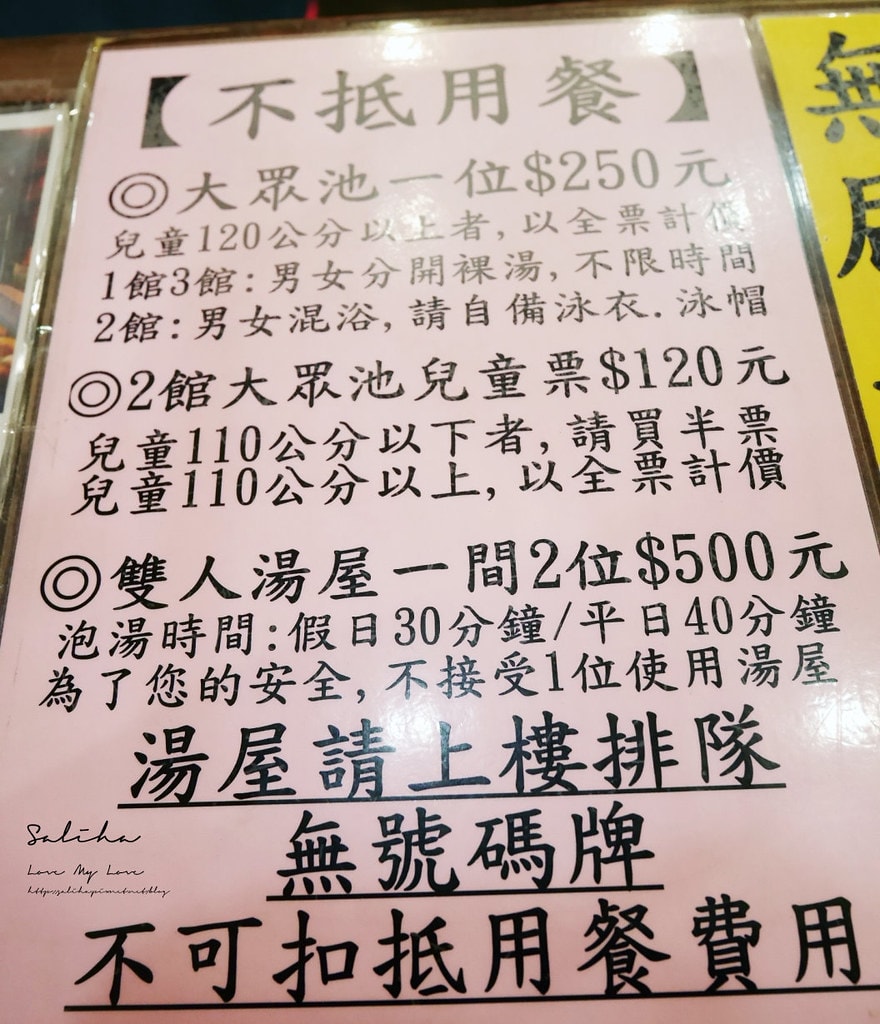 【不抵用餐】
◎大眾池一位$250元
兒童120公分以上者,以全票計價
1館3館:男女分開裸湯,不限時間
2館:男女混浴,請自備泳衣.泳帽
◎2館大眾池兒童票$120元
兒童110公分以下者,請買半票
兒童110公分以上,以全票計價
◎雙人湯屋一間2位$500元
泡湯時間:假日30分鐘/平日40分鐘
為了您的安全,不接受1位使用湯屋
湯屋請上樓排隊
無號碼牌
不可扣抵用餐費用
Saliha
Love My Love
http://saliha.pixnet.net/blog
無